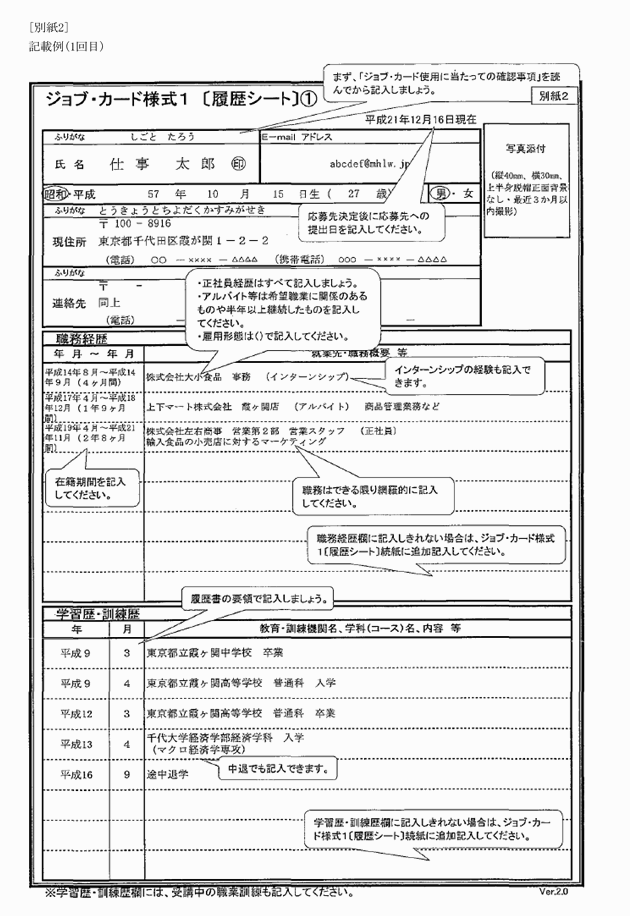 [別紙2]
記載例(1回目)
まず、「ジョブ・カード使用に当たっての確認事項」を読
んでから記入しましょう。
ジョブ・カード様式1 〔履歴シート〕①
別紙2
平成21年12月16日現在
ふりがな しごと たろう
E-mail アドレス
氏 名 仕 事 太 郎 ㊞
abcdef@mhlw.jp
写真添付
(縦40mm、横30mm、
上半身脱帽正面背景
なし・最近3か月以
内撮影)
昭和・平成 57 年 10 月 15 日生 ( 27 歳) 男・女
ふりがな とうきょうとちよだくかすみがせき
〒 100 - 8916
現住所 東京都千代田区霞が関1-2-2
(電話) ○○ - ×××× - △△△△ (携帯電話) ○○○ - ×××× - △△△△
応募先決定後に応募先への
提出日を記入してください。
ふりがな
〒 -
連絡先 同上
(電話) -
・正社員経歴はすべて記入しましょう。
・アルバイト等は希望職業に関係のある
ものや半年以上継続したものを記入し
てください。
・雇用形態は()で記入してください。
職務経歴
年 月 ～ 年 月 就業先・職務概要 等
平成14年8月～平成14
年9月(4ヶ月間)
株式会社大小食品 事務 (インターンシップ)
インターンシップの経験も記入で
きます。
平成17年4月～平成18
年12月(1年9ヶ月
間)
上下マート株式会社 霞ヶ関店 (アルバイト) 商品管理業務など
平成19年4月～平成21
年11月(2年8ヶ月
間)
株式会社左右商事 営業第2部 営業スタッフ (正社員)
輸入食品の小売店に対するマーケティング
在籍期間を記入
してください。
職務はできる限り網羅的に記入
してください。
職務経歴欄に記入しきれない場合は、ジョブ・カード様式
1〔履歴シート〕続紙に追加記入してください。
履歴書の要領で記入しましょう。
学習歴・訓練歴
年 月 教育・訓練機関名、学科(コース)名、内容 等
平成9 3 東京都立霞ヶ関中学校 卒業
平成9 4 東京都立霞ヶ関高等学校 普通科 入学
平成12 3 東京都立霞ヶ関高等学校 普通科 卒業
平成13 4 千代大学経済学部経済学科 入学
(マクロ経済学専攻)
平成16 9 途中退学
中退でも記入できます。
学習歴・訓練歴欄に記入しきれない場合は、ジョブ・カー
ド様式1〔履歴シート〕続紙に追加記入してください。
※学習歴・訓練歴欄には、受講中の職業訓練も記入してください。
Ver.2.0